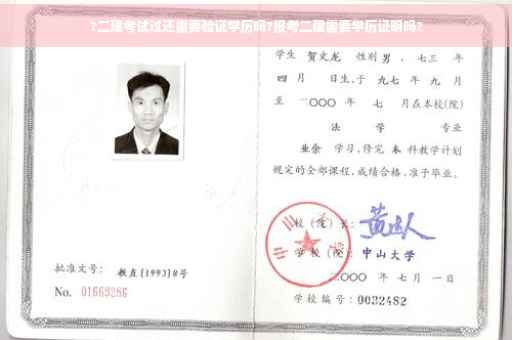 ?二建考试过还需要验证学历吗?报考二建需要学历证明吗?
学生 贺文龙 性别 男 、七三 年
四 月 日生,于 九七 年 九 月
至 二〇〇〇 年 七 月在本校(院)
法 学 专业
业余 学习,修完 本 科教学计划
规定的全部课程,成绩合格,准予毕业。
校 (院) 长:
学 校 (院): 中山大学
二〇〇〇 年 七月 一日
学校编号: 0032482
批准文号: 教直[1993]8号
No. 01669286